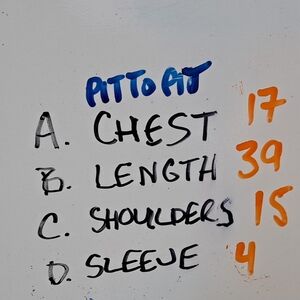 PIT TO PIT
A. CHEST 17
B. LENGTH 39
C. SHOULDERS 15
D. SLEEVE 4